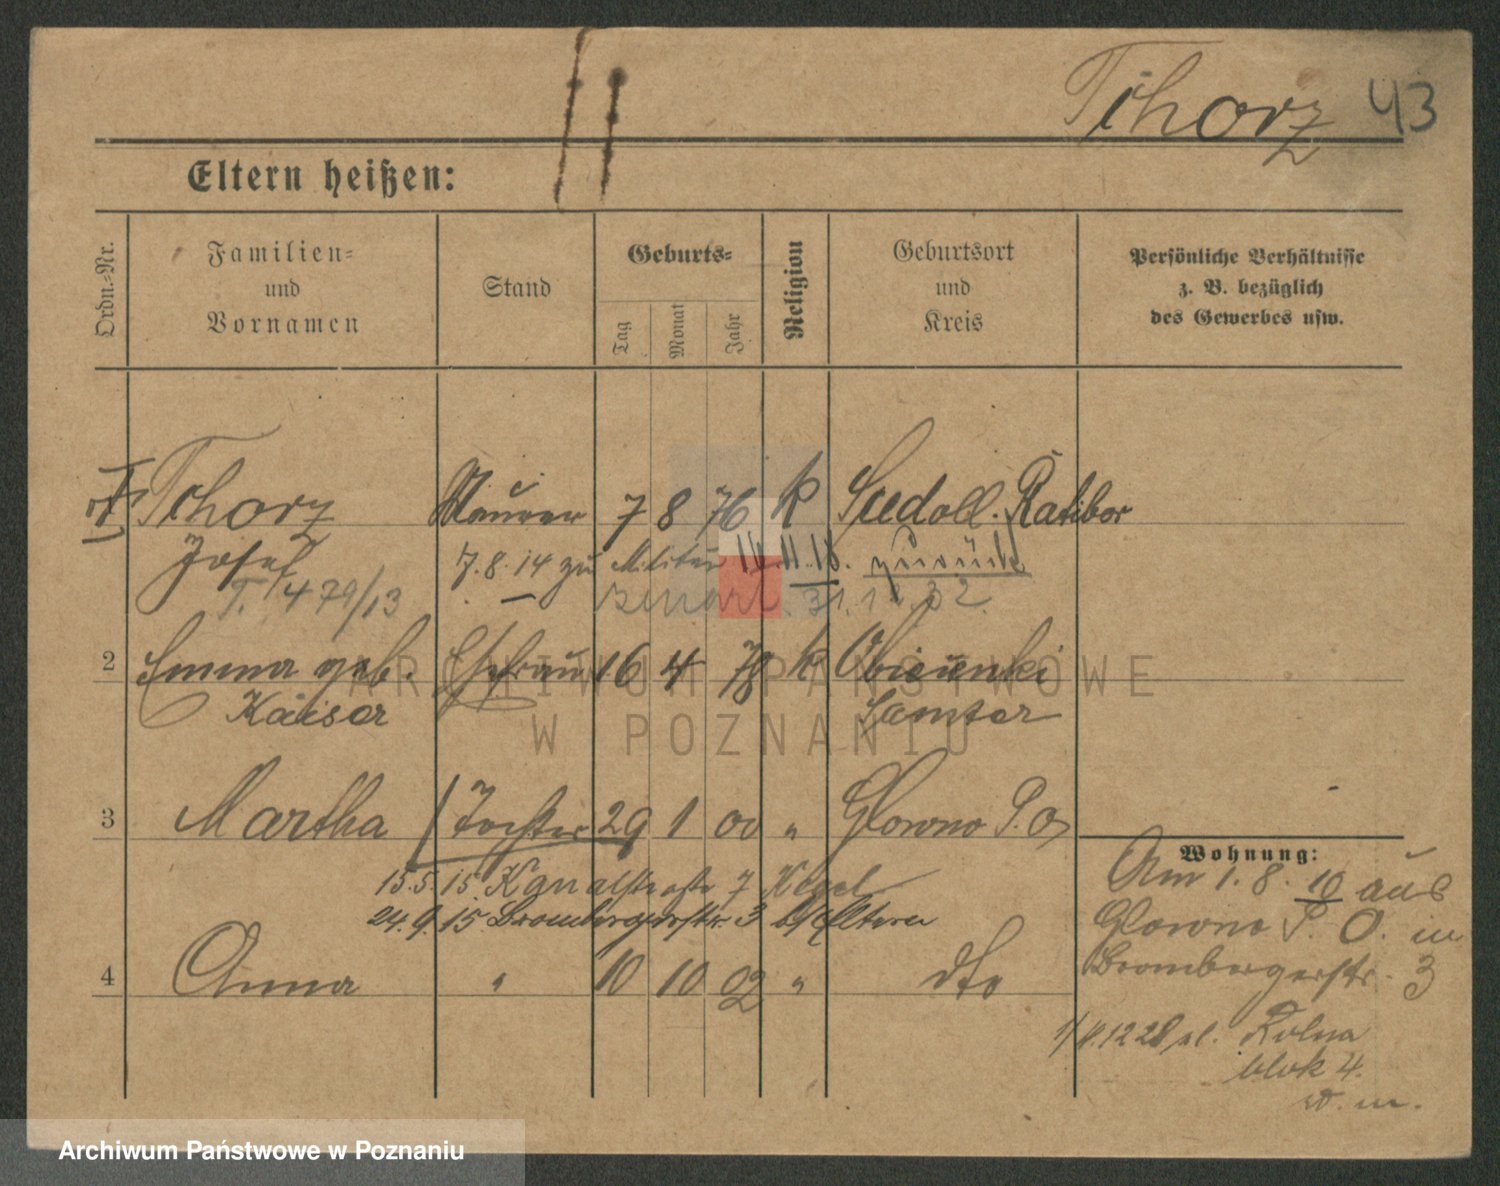 Tchorz 43
Eltern heißen:
Ordn.-Nr.
Familien-
und
Vornamen
Stand
Geburts-
Tag
Monat
Jahr
Religion
Geburtsort
und
Kreis
Persönliche Verhältnisse
z. B. bezüglich
des Gewerbes usw.
Tchorz Maurer 7 8 76 k Sudoll. Ratibor
Josef 7.8.14 zu Militär 18.11.18. zurück
T. 479/13 zmarł. 31.1.32.
2 Emma geb. Ehefrau 16 4 78 k Obiezierki
Kaiser Samter
3 Martha Tochter 29 1 00 " Glowno P. O.
15.5.15 Kanalstr 7
24.9.15 Brombergerstr. 3 b/Eltern
4 Anna " 10 10 02 " dto
Wohnung:
Am 1.8.10 aus
Glowno P. O. in
Brombergerstr. 3
12 28 ul. Rolna
blok 4.
w. m.
ARCHIWUM PAŃSTWOWE
W POZNANIU
Archiwum Państwowe w Poznaniu